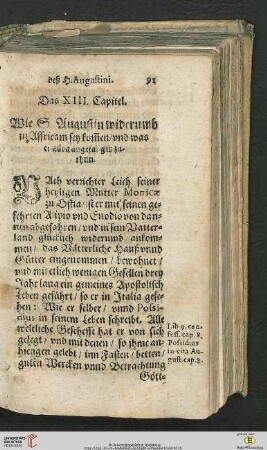 deß H. Augustini. 91
Das XIII. Capitel.
Wie S. Augustin widerumb
in Affricam sey kommen/vnd was
er allda angefangen zu-
thun.
NAch verrichter Leich seiner
heyligen Mutter Monicæ
zu Ostia/ ist er mit seinen ge-
fehrten Alipio vnd Euodio von dan-
nen abgefahren/ vnd in sein Vatter-
land glücklich widerumb ankom-
men/ das Vätterliche Hauß vnnd
Gütter eingenommen/ bewohnet/
vnd mit etlich wenigen Gesellen drey
Jahr lang ein gemeines Apostolisch
Leben geführt/ so er in Italia gese-
hen: Wie er selber/ vnnd Possi-
dius in seinem Leben schreibt. Alle
weltliche Geschefft hat er von sich
gelegt/ vnd mit denen/ so ihme an-
hiengen gelebt/ im Fasten/ betten/
guten Wercken vnnd Betrachtung
Gött-
Lib 9. con-
fess. cap. 8.
Possidius
in vita Au-
gust. cap. 3.